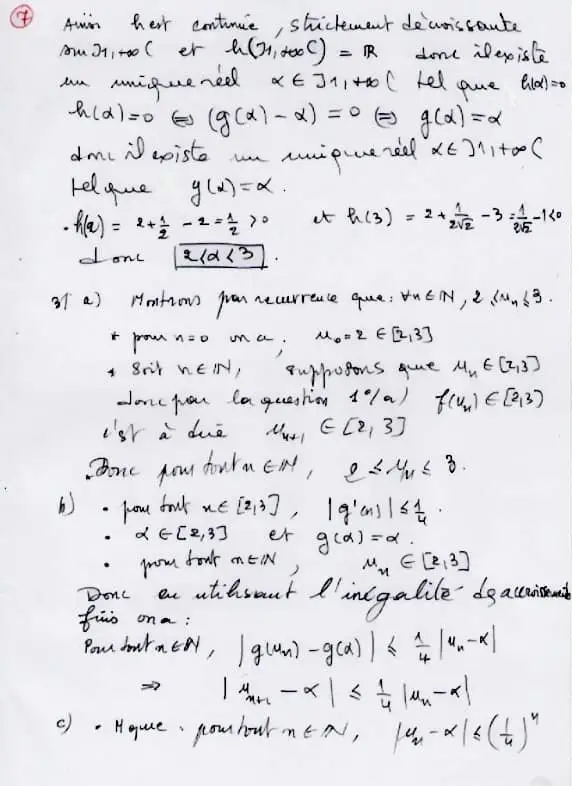 7
Ainsi h est continue, strictement décroissante
sur ]1,+∞[ et h(]1,+∞[) = ℝ donc il existe
un unique réel α ∈ ]1,+∞[ tel que h(α)=0
h(α)=0 ⇔ (g(α) - α) = 0 ⇔ g(α)=α
donc il existe un unique réel α ∈ ]1,+∞[
tel que g(α)=α.
• h(2) = 2+1/2 - 2 = 1/2 > 0 et h(3) = 2 + 1/(2√2) - 3 = 1/(2√2) - 1 < 0
donc 2<α<3.
3/ a) Montrons par recurrence que: ∀n∈ℕ, 2≤u_n≤3.
* pour n=0 on a: u_0=2 ∈ [2,3]
* Soit n∈ℕ, supposons que u_n ∈ [2,3]
donc par la question 1°/a) f(u_n) ∈ [2,3]
c'est à dire u_{n+1} ∈ [2,3]
. Donc pour tout n∈ℕ, 2 ≤ u_n ≤ 3.
b) • pour tout x∈[2,3], |g'(x)| ≤ 1/4.
• α∈[2,3] et g(α)=α.
• pour tout n∈ℕ, u_n ∈ [2,3]
Donc en utilisant l'inégalité des accroissements
finis on a:
Pour tout n∈ℕ, |g(u_n) - g(α)| ≤ 1/4 |u_n - α|
⇒ |u_{n+1} - α| ≤ 1/4 |u_n - α|
c) • Mque. pour tout n∈ℕ, |u_n - α| ≤ (1/4)^n